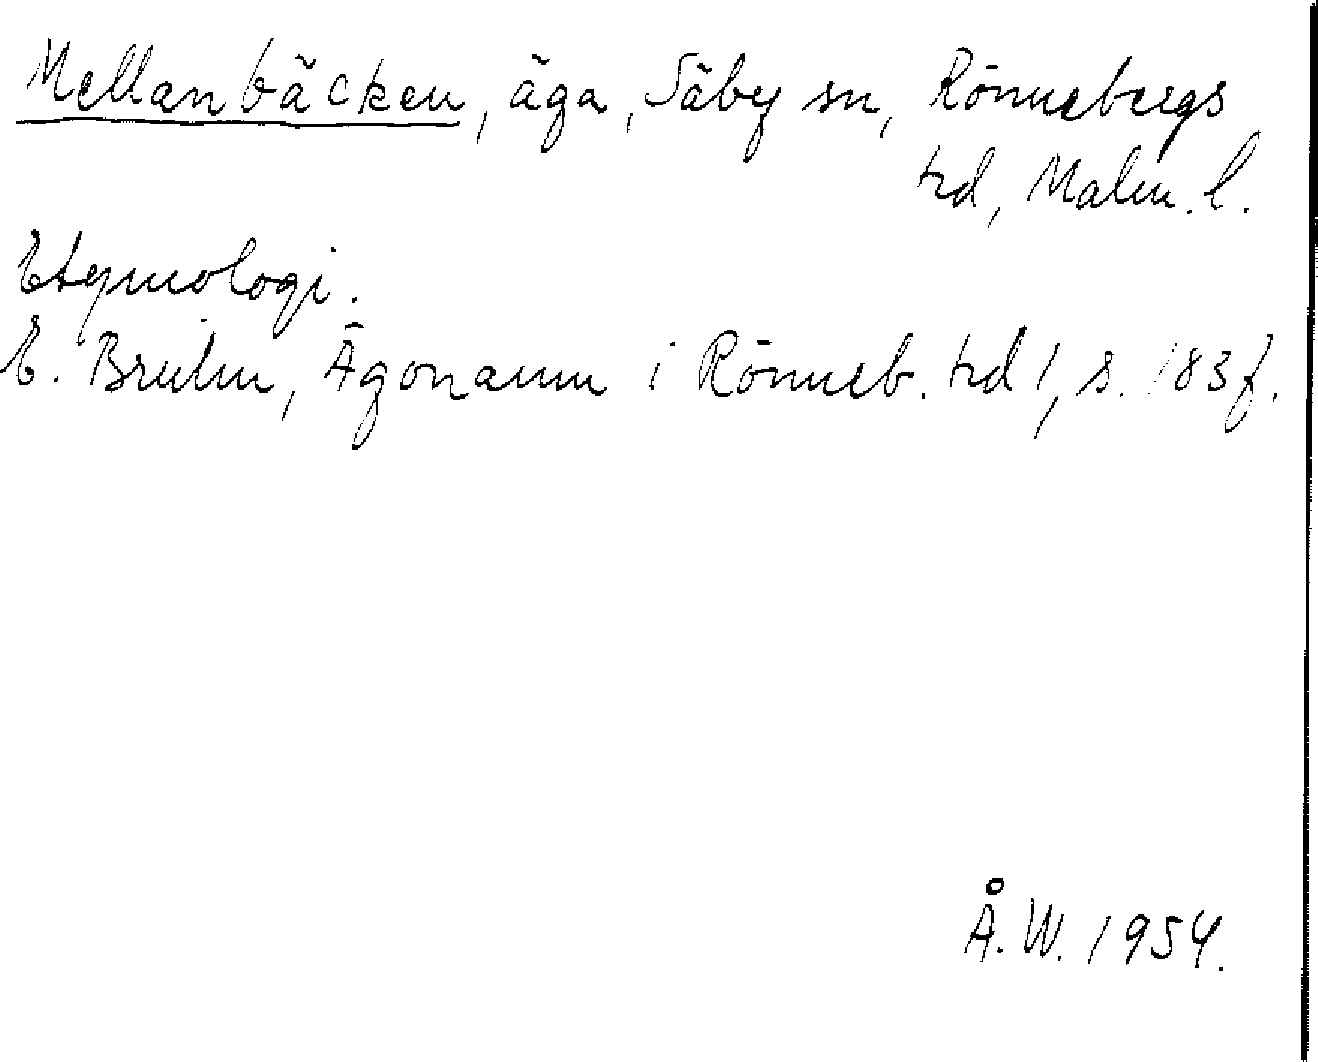 Mellanbäcken, äga, Säby sn, Rönnebergs
hd, Malm. l.
Etymologi.
E. Bruhn, Ägonamn i Rönneb. hd 1, s. 183 f.
Å. W. 1954.